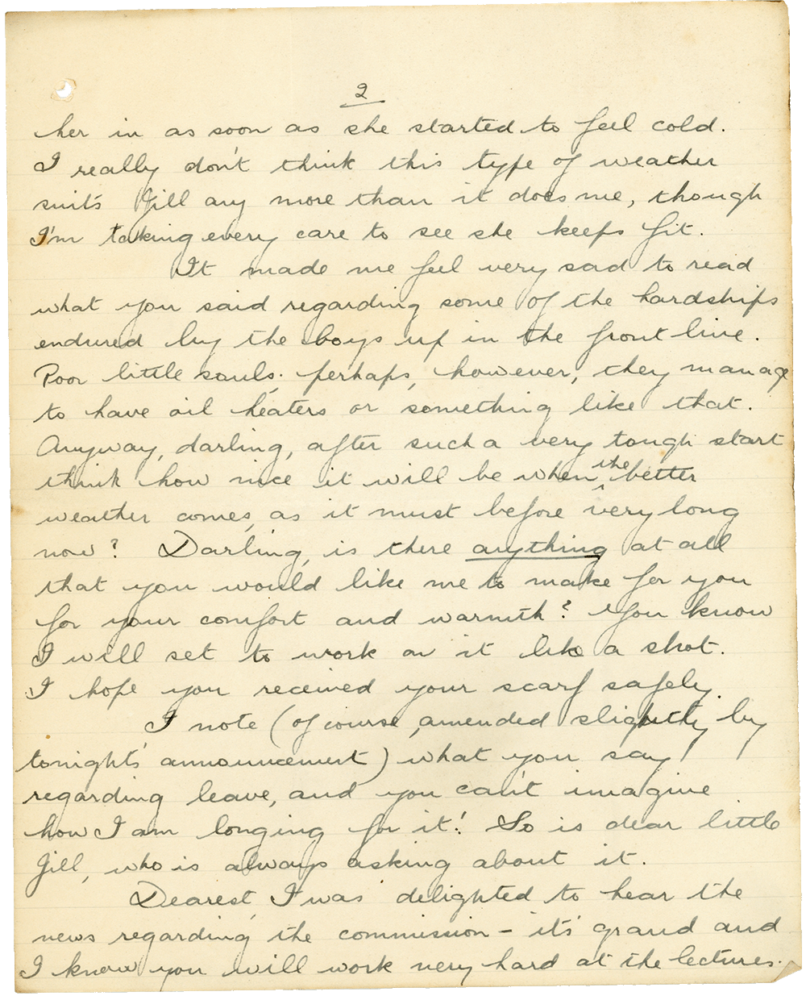 2
her in as soon as she started to feel cold.
I really don't think this type of weather
suits Jill any more than it does me, though
I'm taking every care to see she keeps fit.
It made me feel very sad to read
what you said regarding some of the hardships
endured by the boys up in the front line.
Poor little souls. perhaps, however, they manage
to have oil heaters or something like that.
Anyway, darling, after such a very tough start
think how nice it will be when the better
weather comes, as it must before very long
now? Darling, is there anything at all
that you would like me to make for you
for your comfort and warmth? You know
I will set to work on it like a shot.
I hope you received your scarf safely.
I note (of course, amended slightly by
tonight's announcement) what you say
regarding leave, and you can't imagine
how I am longing for it! So is dear little
Jill, who is always asking about it.
Dearest, I was delighted to hear the
news regarding the commission – it's grand and
I know you will work very hard at the lectures.